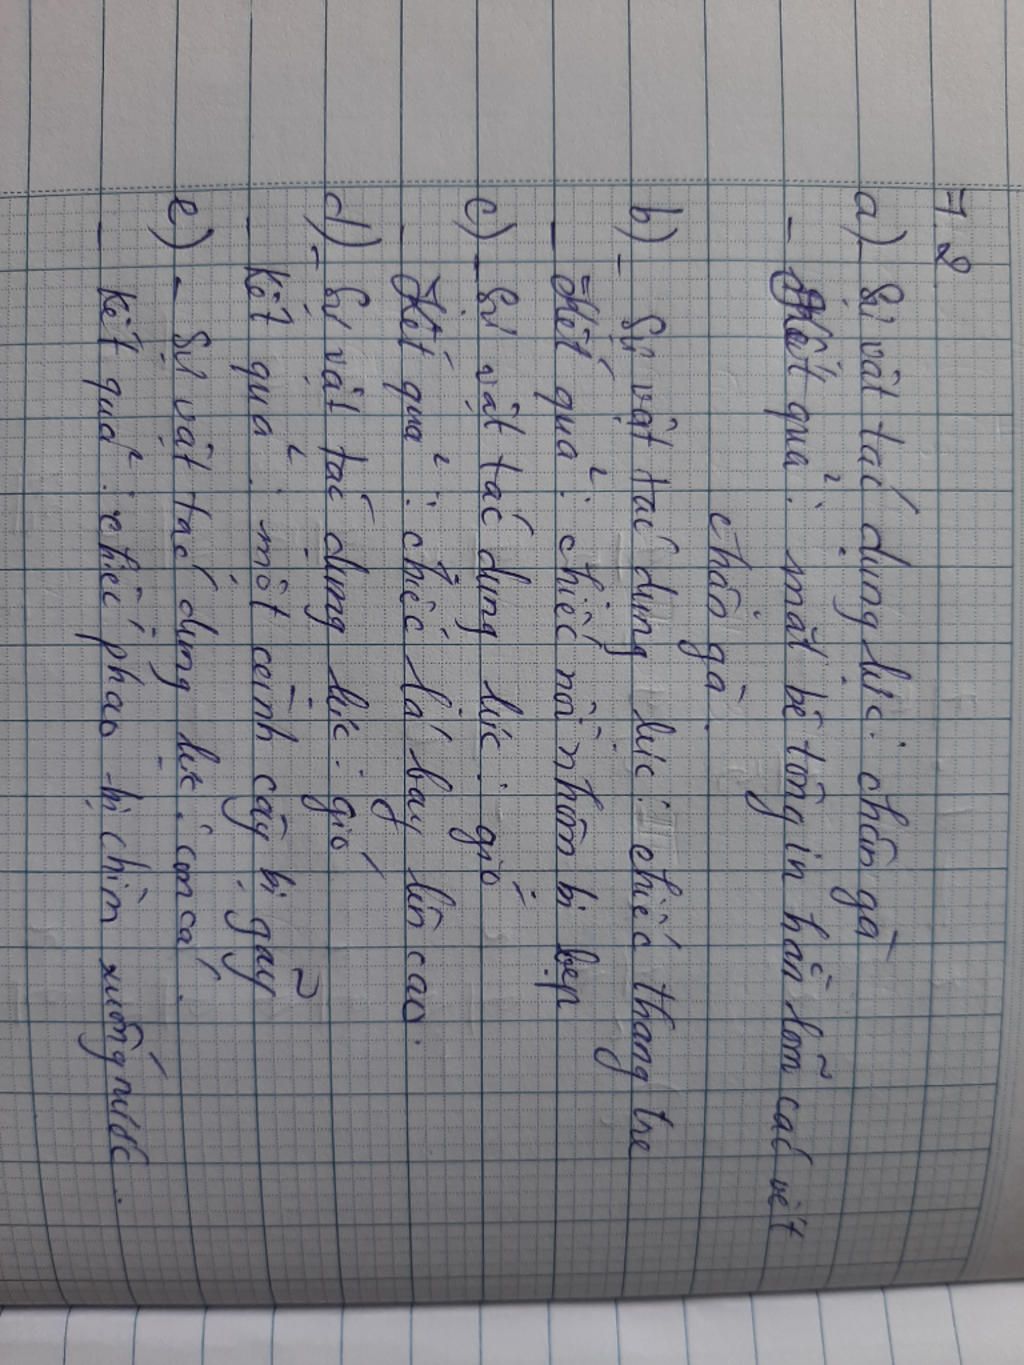 7.2
a) - Sự vật tác dụng lực: chân gà
- Kết quả: mặt bê tông in hằn lõm các vết
chân gà.
b) - Sự vật tác dụng lực: chiếc thang tre
- Kết quả: chiếc nồi nhôm bị bẹp
c) - Sự vật tác dụng lực: gió
- Kết quả: chiếc lá bay lên cao.
d) - Sự vật tác dụng lực: gió
- Kết quả: một cành cây bị gãy
e) - Sự vật tác dụng lực: con cá.
- Kết quả: chiếc phao bị chìm xuống nước.